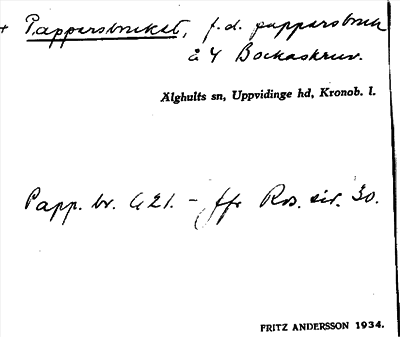 + Pappersbruket, f.d. pappersbruk
å 4 Bockaskruv.
Älghults sn, Uppvidinge hd, Kronob. l.
Papp. br. G 21. – ffr Ros. 30.
FRITZ ANDERSSON 1934.